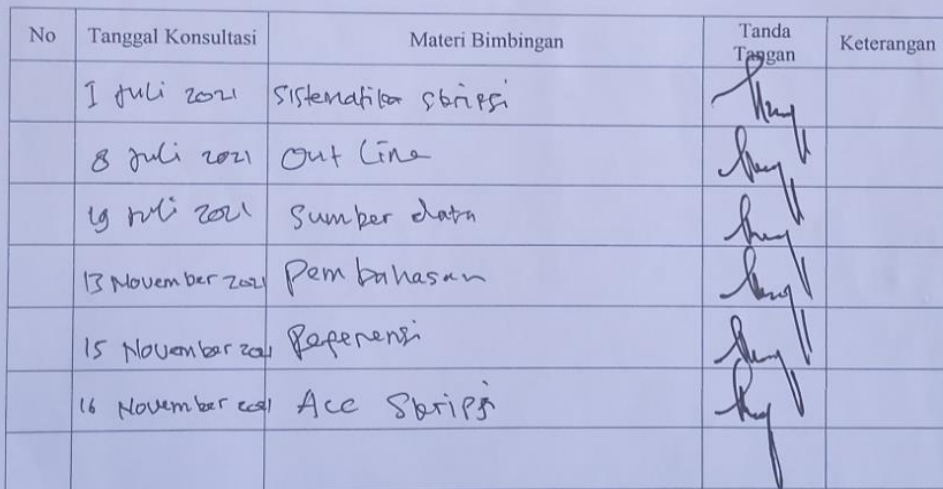 No Tanggal Konsultasi Materi Bimbingan Tanda Tangan Keterangan
1 Juli 2021 Sistematika Skripsi
8 Juli 2021 Out Line
19 Juli 2021 Sumber data
13 November 2021 Pembahasan
15 November 2021 Reperensi
16 November 2021 Acc Skripsi